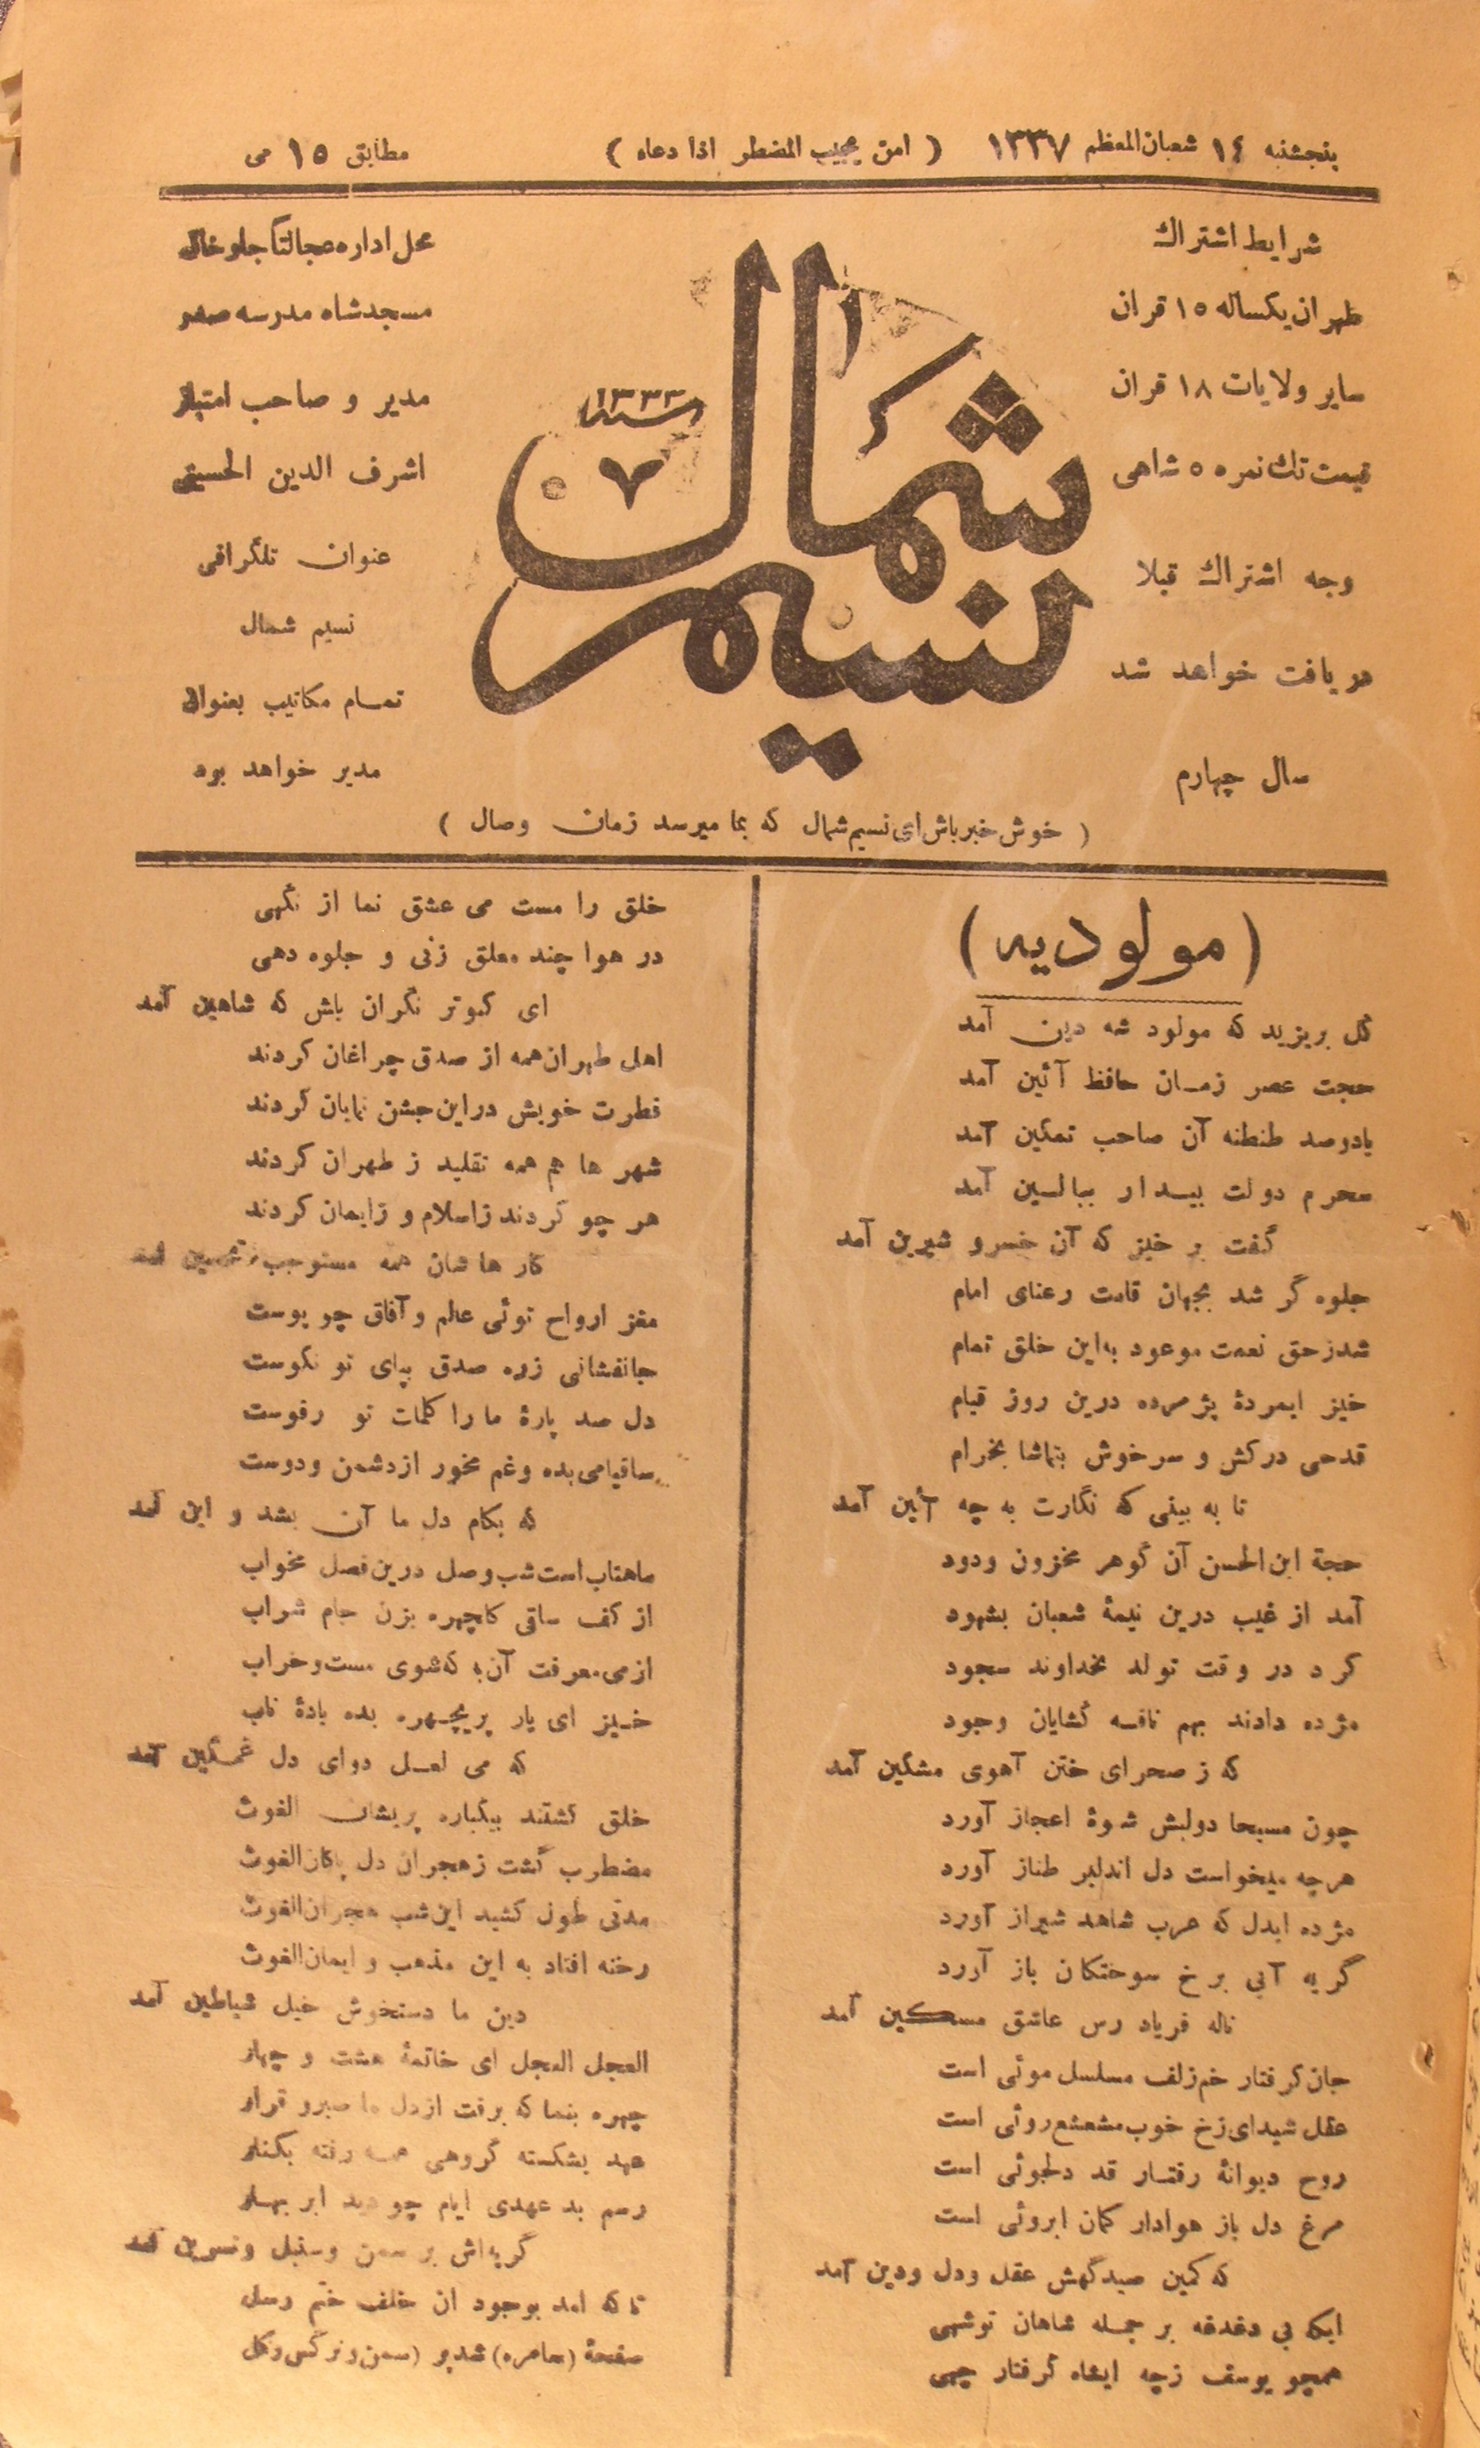 پنجشنبه ١٤ شعبان المعظم ١٣٣٧ ( امن یجیب المضطر اذا دعاه ) مطابق ١٥ می
شرایط اشتراك
طهران یکساله ١٥ قران
سایر ولایات ١٨ قران
قیمت تك نمره ٥ شاهی
وجه اشتراك قبلا
دریافت خواهد شد
سال چهارم
نسیم شمال
سنه ١٣٣٣
٧
محل اداره عجالتا جلوخان
مسجد شاه مدرسه صدر
مدیر و صاحب امتیاز
اشرف الدین الحسینی
عنوان تلگرافی
نسیم شمال
تمام مکاتیب بعنوان
مدیر خواهد بود
( خوش خبر باش ای نسیم شمال که بما میرسد زمان وصال )
( مولودیه )
گل بریزید که مولود شه دین آمد
حجت عصر زمان حافظ آئین آمد
بادوصد طنطنه آن صاحب تمکین آمد
سحرم دولت بیدار ببالین آمد
گفت بر خیز که آن خسرو شیرین آمد
جلوه گر شد بجهان قامت رعنای امام
شد زحق نعمت موعود به این خلق تمام
خیز ایمردهٔ پژمرده درین روز قیام
قدحی درکش و سرخوش بتماشا بخرام
تا به بینی که نگارت به چه آئین آمد
حجة ابن الحسن آن گوهر مخزون ودود
آمد از غیب درین نیمهٔ شعبان بشهود
کرد در وقت تولد بخداوند سجود
مژده دادند بهم نافه گشایان وجود
که ز صحرای ختن آهوی مشکین آمد
چون مسیحا دولبش شوهٔ اعجاز آورد
هرچه میخواست دل اندلبر طناز آورد
مژده ایدل که عرب شاهد شیراز آورد
گریه آبی برخ سوختکان باز آورد
ناله فریاد رس عاشق مسکین آمد
جان گرفتار خم زلف مسلسل موئی است
عقل شیدای زخ خوب مشعشع روئی است
روح دیوانهٔ رفتار قد دلجوئی است
مرغ دل باز هوادار کمان ابروئی است
که کمین صیدگهش عقل ودل ودین آمد
ایکه بی دغدغه بر جمله شاهان توشهی
همچو یوسف زچه ایشاه گرفتار چهی
خلق را مست می عشق نما از نگهی
در هوا چند معلق زنی و جلوه دهی
ای کبوتر نگران باش که شاهین آمد
اهل طهران همه از صدق چراغان کردند
فطرت خویش در این جشن نمایان کردند
شهر ها هم همه تقلید ز طهران کردند
هر چو کردند زاسلام و زایمان کردند
کار ها شان همه مستوجب تحسین آمد
مغز ارواح توئی عالم و آفاق چو پوست
جانفشانی زره صدق بپای تو نکوست
دل صد پارهٔ ما را کلمات تو رفوست
ساقیامی بده وغم مخور ازدشمن ودوست
که بکام دل ما آن بشد و این آمد
ماهتاب است شب وصل درین فصل مخواب
از کف ساقی کلچهره بزن جام شراب
ازمی معرفت آن به که شوی مست وخراب
خیز ای یار پریچهره بده بادهٔ ناب
که می لعل دوای دل غمگین آمد
خلق گشتند بیکباره پریشان الغوث
مضطرب گشت زهجران دل پاکان الغوث
مدتی طول کشید این شب هجران الغوث
رخنه افتاد به این مذهب و ایمان الغوث
دین ما دستخوش خیل شیاطین آمد
العجل العجل ای خاتمهٔ هشت و چهار
چهره بنما که برفت ازدل ما صبرو قرار
عهد بشکسته گروهی همه رفته بکنار
رسم بد عهدی ایام چو دید ابر بهار
گریه اش بر سمن وسنبل ونسرین آمد
تا که امد بوجود ان خلف ختم رسل
صفحهٔ (سامره) شد پر (سمن ونرگس وگل